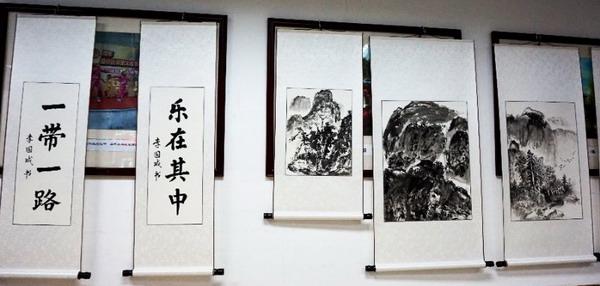 一带一路
李国成书
乐在其中
李国成书